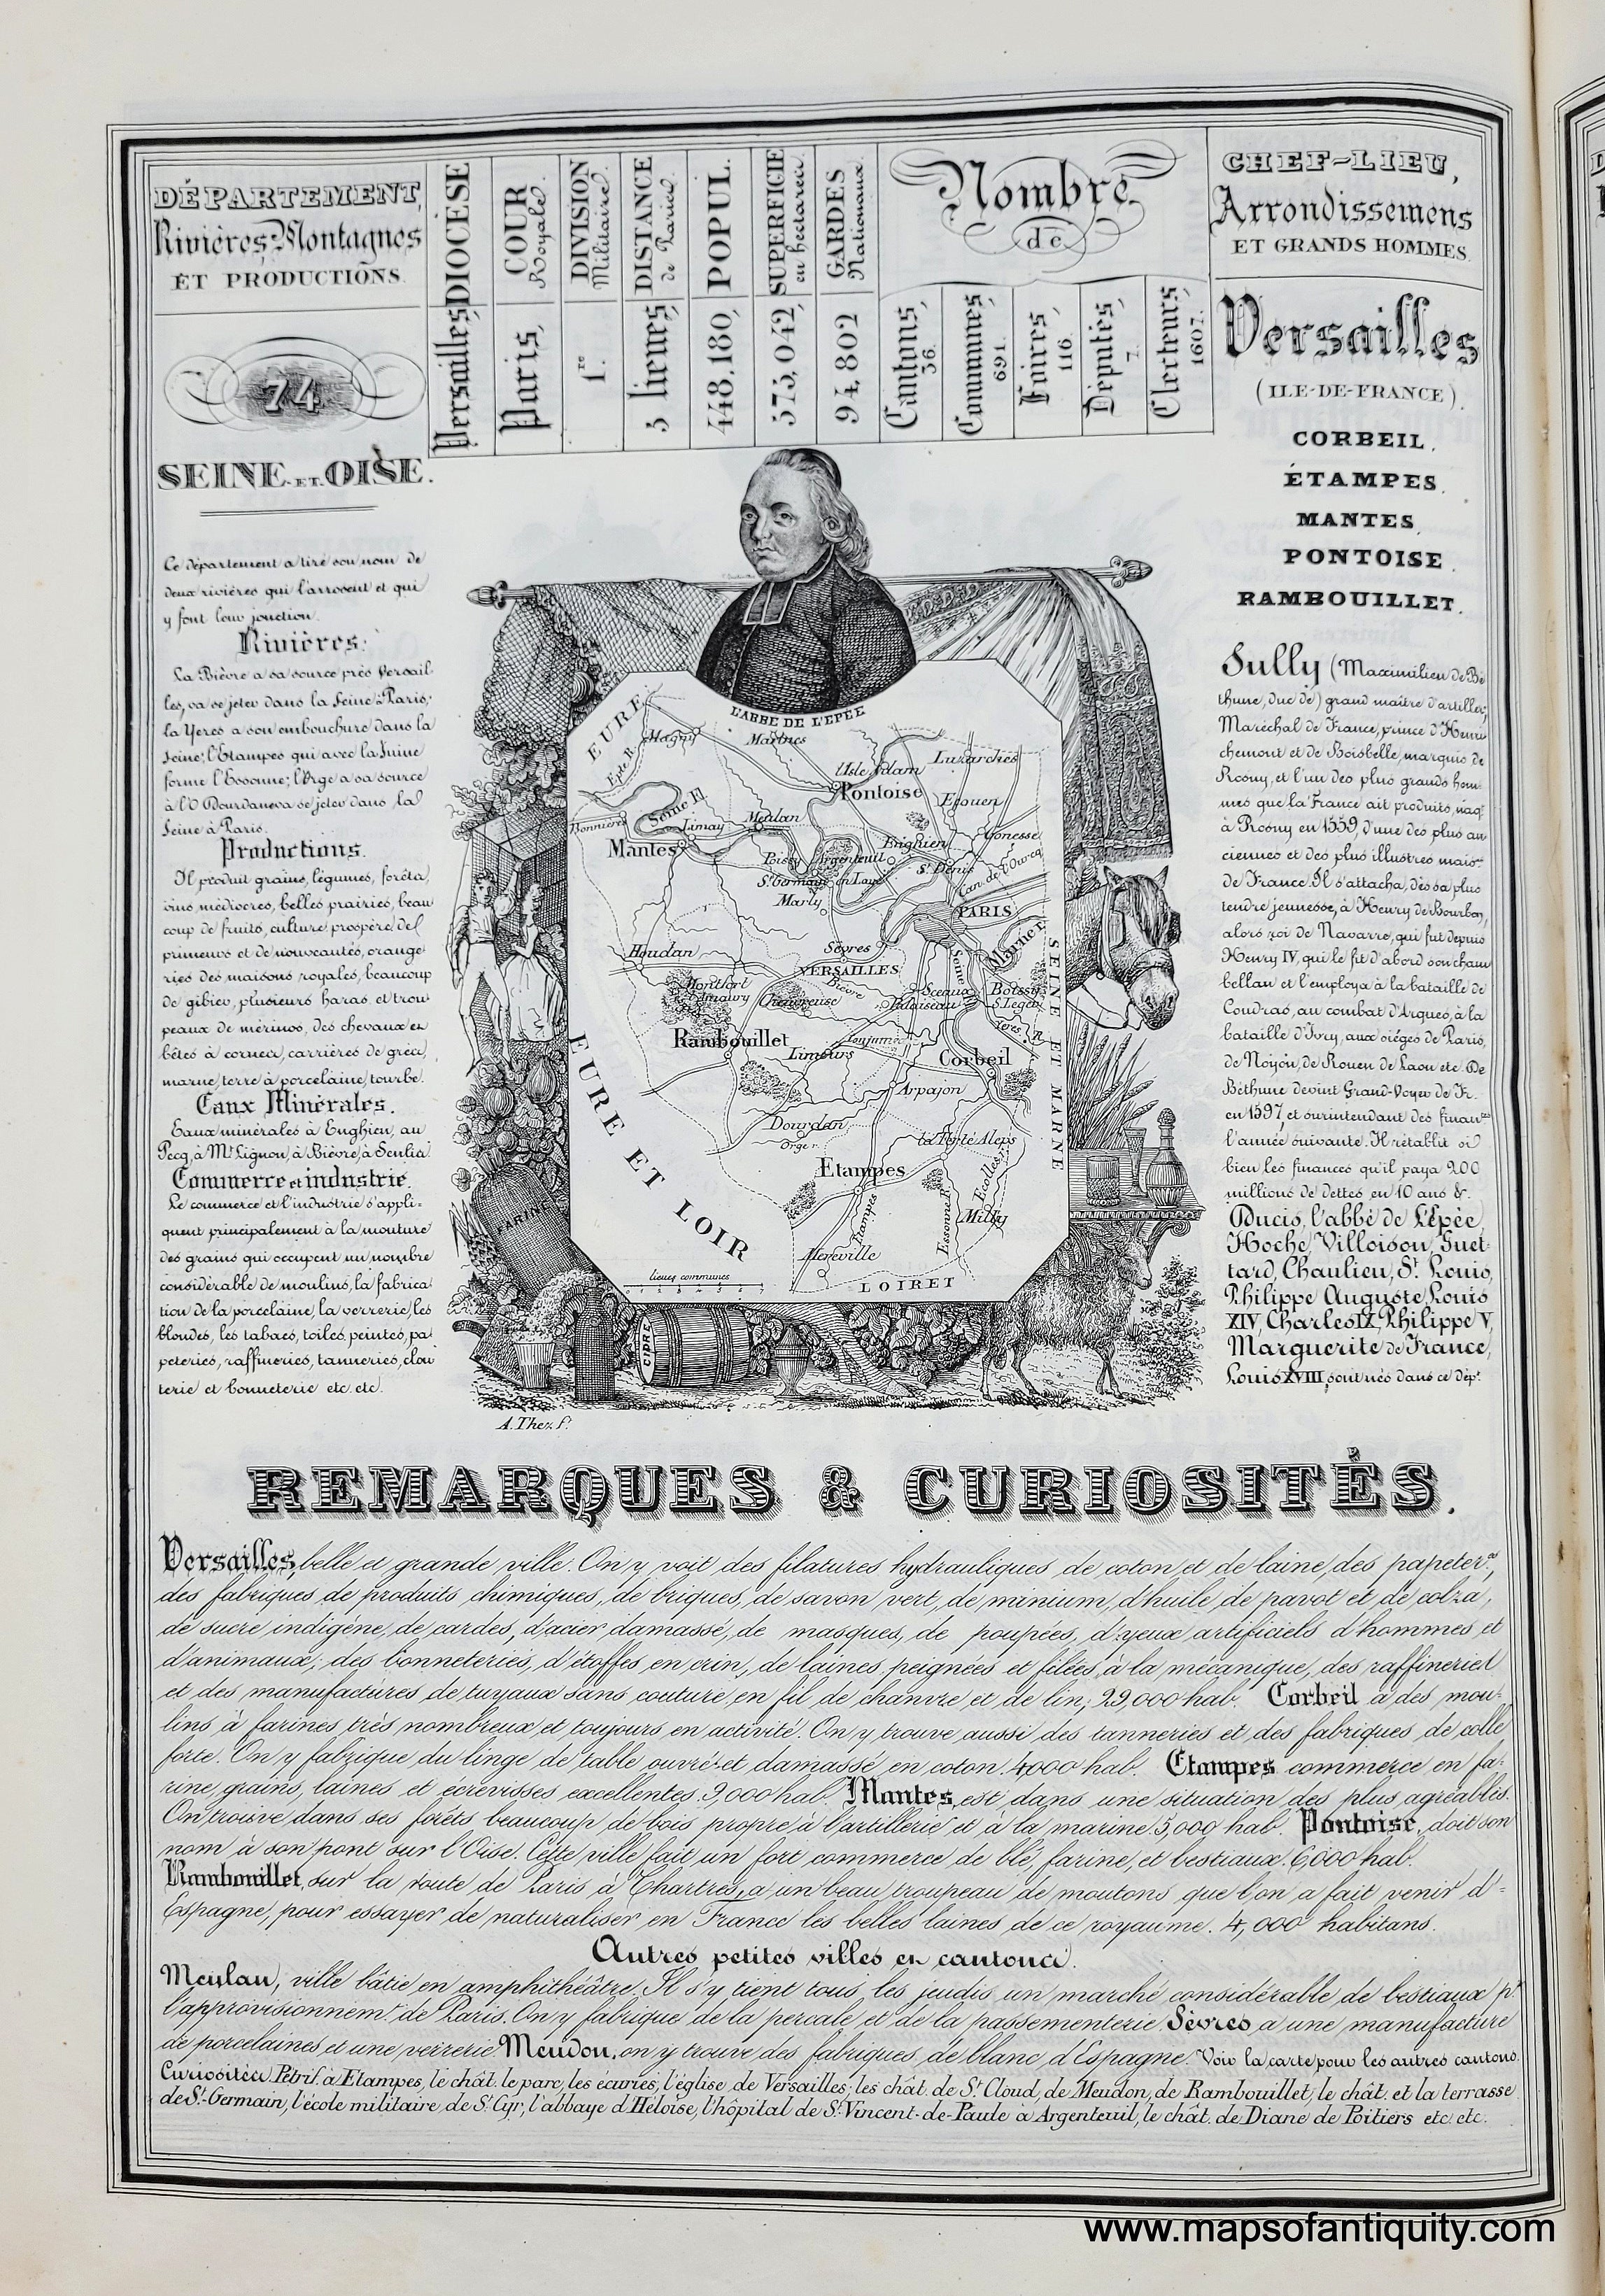 DÉPARTEMENT,
Rivières, Montagnes
ET PRODUCTIONS.
DIOCÈSE
Versailles,
COUR
Royale.
Paris,
DIVISION
Militaire.
1.re
DISTANCE
de Paris.
5 lieues,
POPUL.
448.180,
SUPERFICIE
en hectares.
575,042,
GARDES
Nationaux.
94,802
Nombre
de
Cantons,
36.
Communes,
691.
Foires,
116.
Députés,
7.
Electeurs,
1607.
CHEF-LIEU,
Arrondissemens
ET GRANDS HOMMES.
74
SEINE-ET-OISE.
Ce département a tiré son nom de
deux rivières qui l'arrosent et qui
y font leur jonction.
Rivières:
La Bièvre a sa source près Versail
les, va se jeter dans la Seine à Paris;
la Yeres a son embouchure dans la
Seine; l'Etampes qui avec la Juine
forme l'Essonne; l'Orge a sa source
à l'O Dourdan va se jeter dans la
Seine à Paris.
Productions.
Il produit grains, légumes, forêts,
vins médiocres, belles prairies, beau
coup de fruits, culture prospère del
primeurs et de nouveautés, orange
ries des maisons royales, beaucoup
de gibier, plusieurs haras, et trou
peaux de mérinos, des chevaux et
bêtes à cornes, carrières de grès,
marne, terre à porcelaine, tourbe.
Eaux Minérales.
Eaux minérales à Enghien, au
Pecq, à Mt Lignon, à Bièvre, à Senlis.
Commerce et industrie.
Le commerce et l'industrie s'appli-
quent principalement à la mouture
des grains qui occupent un nombre
considérable de moulins, la fabrica
tion de la porcelaine, la verrerie, les
blondes, les tabacs, toiles peintes, pa
peteries, raffineries, tanneries, clou
terie et bonneterie etc. etc.
L'ABBÉ DE L'EPÉE
EURE
Epte R.
Magny
Marines
L'Isle Adam
Luzarches
Pontoise
Ecouen
Seine Fl.
Bonnières
Limay
Meulan
Mantes
Poissy
Argenteuil
Enghien
Gonesse
St. Germain en Laye
St. Denis
Can. de l'Ourcq
Marly
PARIS
Marne R.
Houdan
Sèvres
VERSAILLES
Seine
Montfort
l'Amaury
Chevreuse
Bièvre
Sceaux
Palaiseau
Boissy
S. Leger
Rambouillet
Limours
Yeres R.
Corbeil
Arpajon
Dourdan
Orge r.
la Ferté Aleps
Etampes
Ecolle r.
Etampes
Essonne R.
Milly
Mereville
EURE ET LOIR
LOIRET
SEINE ET MARNE
lieues communes
FARINE
CIDRE
A. Thez. f.
Versailles
(ILE-DE-FRANCE).
CORBEIL.
ÉTAMPES.
MANTES.
PONTOISE.
RAMBOUILLET.
Sully (Maximilien de Bé
thune, duc de) grand maître d'artiller;
Maréchal de France, prince d'Henri
chemont et de Boisbelle, marquis de
Rosny, et l'un des plus grands hom-
mes que la France ait produits, naq.
à Rosny en 1559, d'une des plus an
ciennes et des plus illustres mais.ns
de France. Il s'attacha, dès sa plus
tendre jeunesse, à Henry de Bourbon,
alors roi de Navarre, qui fut depuis
Henry IV, qui le fit d'abord son cham
bellan et l'employa à la bataille de
Coudras, au combat d'Arques, à la
bataille d'Ivry, aux sièges de Paris,
de Noyon, de Rouen de Laon etc. De
Béthune devint Grand-Voyer de Fr.
en 1597, et surintendant des finan.ces
l'année suivante. Il rétablit si
bien les finances qu'il paya 200
millions de dettes en 10 ans &.
Ducis, l'abbé de l'Epée,
Hoche, Villoison, Guet-
tard, Chaulieu, St. Louis,
Philippe Auguste, Louis
XIV, Charles IX, Philippe V,
Marguerite de France,
Louis XVIII, sont nés dans ce dépt.
REMARQUES & CURIOSITÉS.
Versailles, belle et grande ville. On y voit des filatures hydrauliques de coton et de laine, des papeter.es,
des fabriques de produits chimiques, de briques, de savon vert, de minium, d'huile de pavot et de colza,
de sucre indigène, de cardes, d'acier damassé, de masques, de poupées, d'yeux artificiels d'hommes et
d'animaux; des bonneteries, d'étoffes en crin, de laines peignées et filées à la mécanique, des raffineries
et des manufactures de tuyaux sans couture en fil de chanvre et de lin; 29,000 hab. Corbeil a des mou-
lins à farines très nombreux et toujours en activité. On y trouve aussi des tanneries et des fabriques de colle
forte. On y fabrique du linge de table ouvré et damassé en coton. 4000 hab. Etampes commerce en fa-
rine, grains, laines et écrevisses excellentes. 9,000 hab. Mantes est dans une situation des plus agréables.
On trouve dans ses forêts beaucoup de bois propre à l'artillerie et à la marine. 5,000 hab. Pontoise, doit son
nom à son pont sur l'Oise. Cette ville fait un fort commerce de blé, farine, et bestiaux. 6,000 hab.
Rambouillet, sur la route de Paris à Chartres, a un beau troupeau de moutons que l'on a fait venir d'-
Espagne, pour essayer de naturaliser en France les belles laines de ce royaume. 4,000 habitans.
Autres petites villes en cantons.
Meulan, ville bâtie en amphithéâtre. Il s'y tient tous les jeudis un marché considérable de bestiaux pr.
l'approvisionnemt. de Paris. On y fabrique de la percale et de la passementerie. Sèvres a une manufacture
de porcelaines, et une verrerie. Meudon, on y trouve des fabriques de blanc d'Espagne. Voir la carte pour les autres cantons.
Curiosités. Pétrif. à Etampes, le chât. le parc, les écuries, l'église de Versailles; les chât. de St. Cloud, de Meudon, de Rambouillet, le chât. et la terrasse
de St.-Germain, l'école militaire de St. Cyr, l'abbaye d'Héloïse, l'hôpital de St. Vincent-de-Paule à Argenteuil, le chât. de Diane de Poitiers etc. etc.
www.mapsofantiquity.com